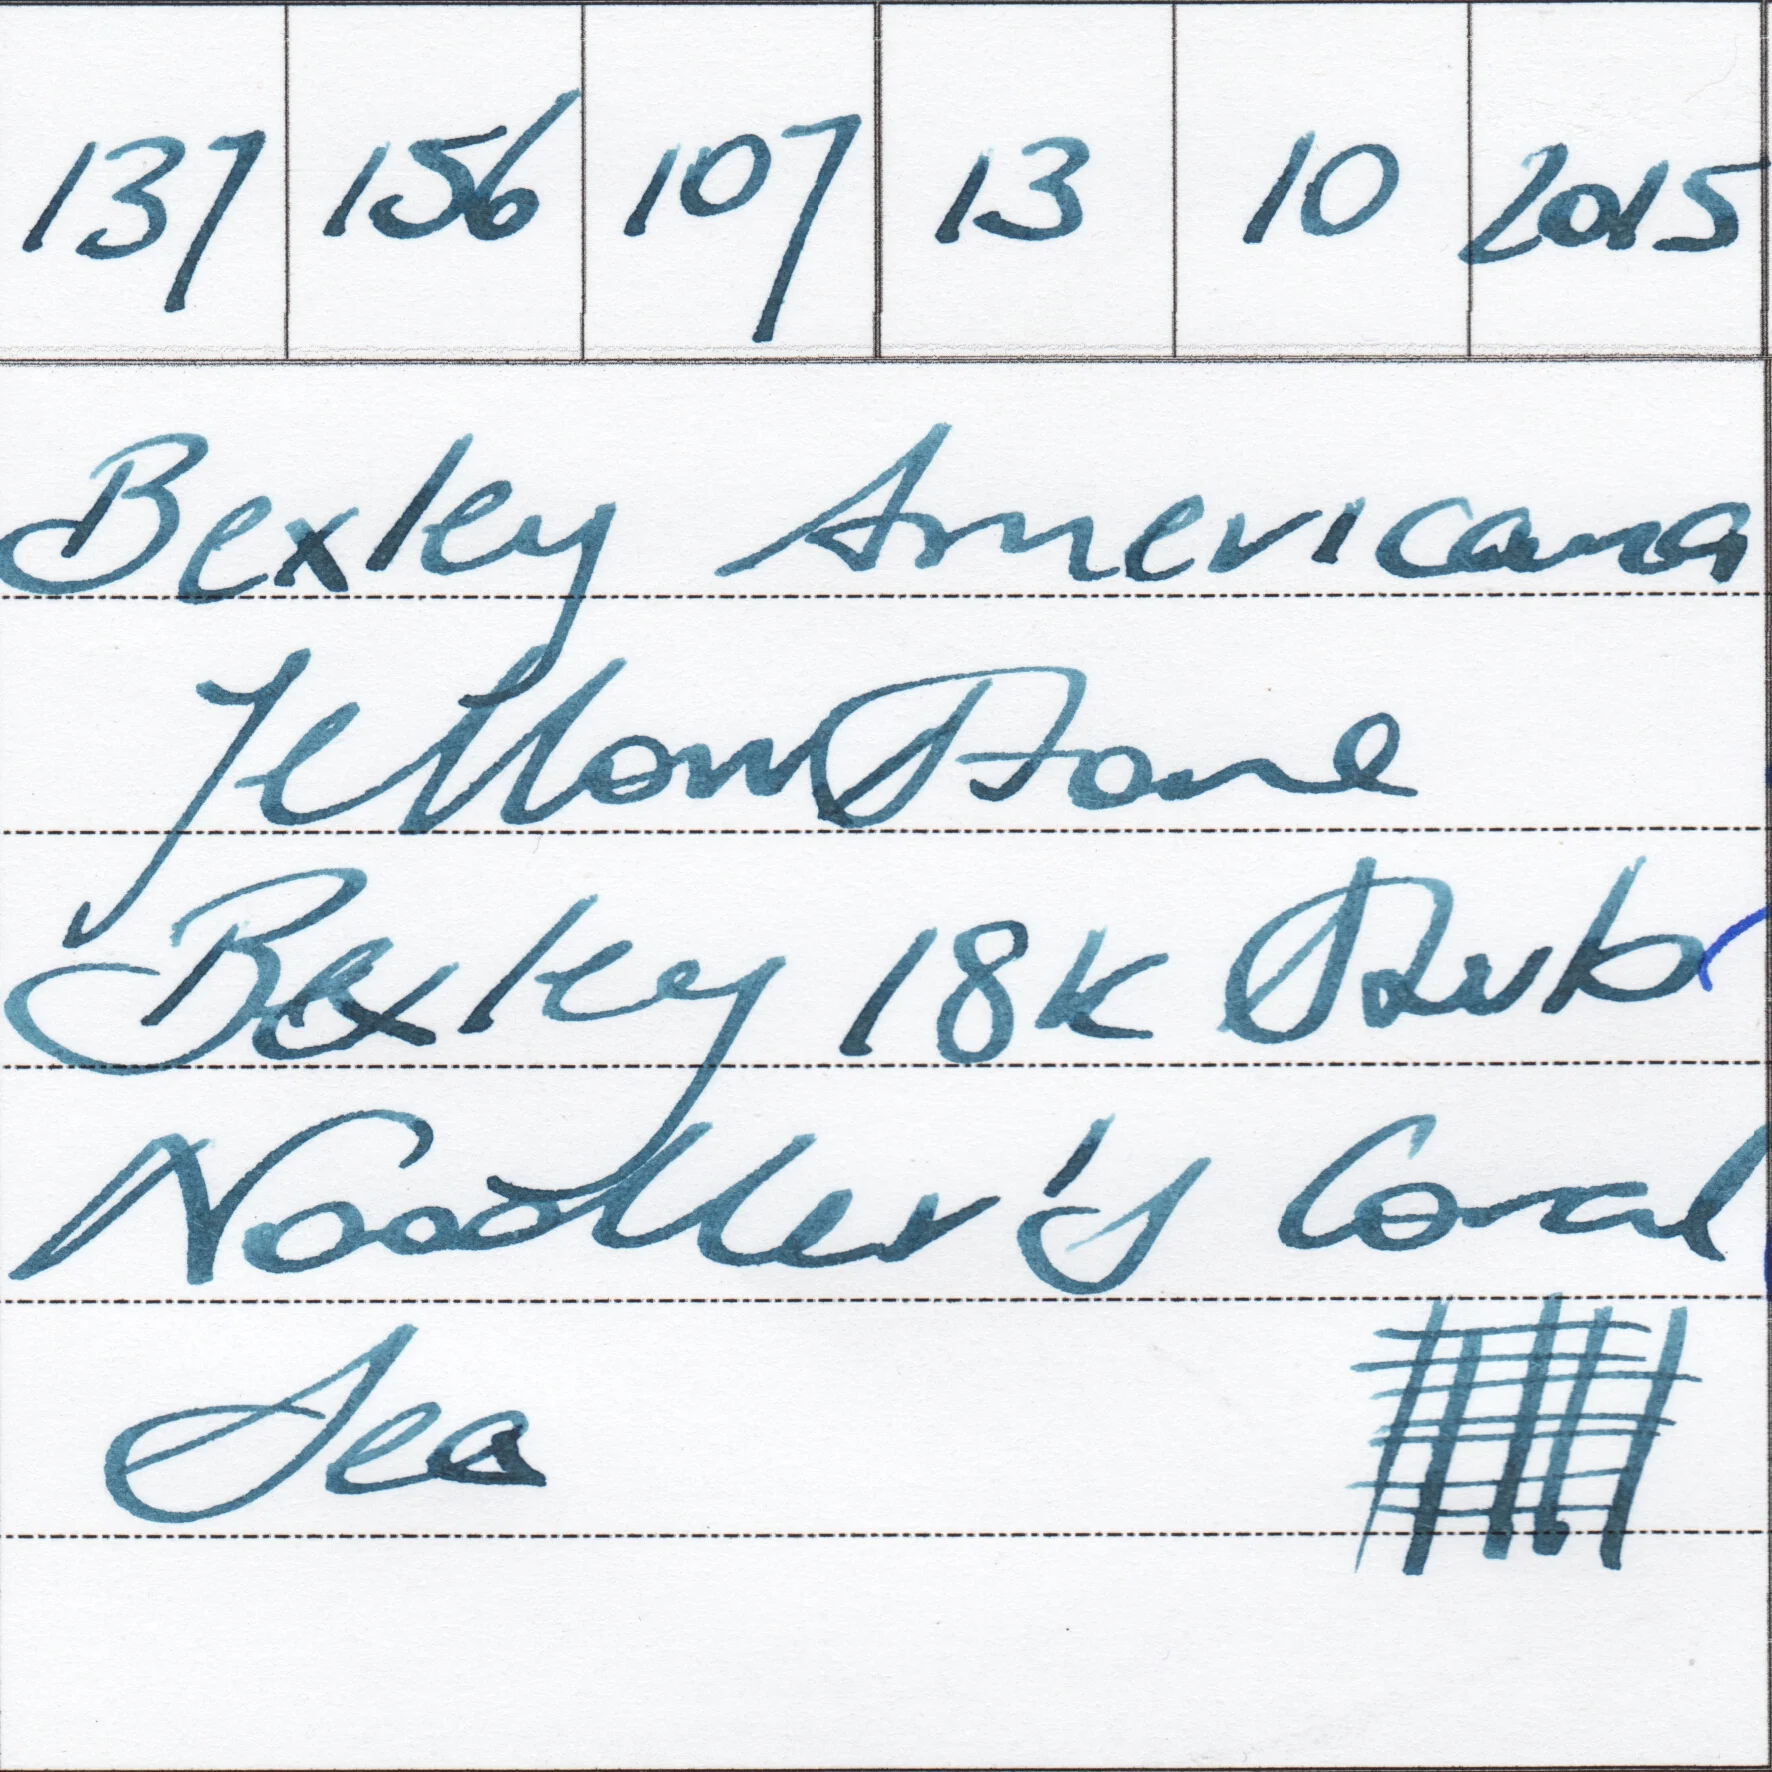 137 156 107 13 10 2015
Bexley Americana
YellowStone
Bexley 18K Stub
Noodler's Coral
Sea